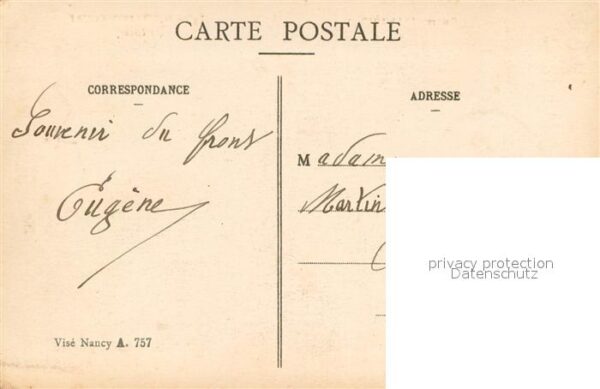 CARTE POSTALE
CORRESPONDANCE
ADRESSE
Souvenir du front
Eugène
Madam
Martin
privacy protection
Datenschutz
Visé Nancy A. 757